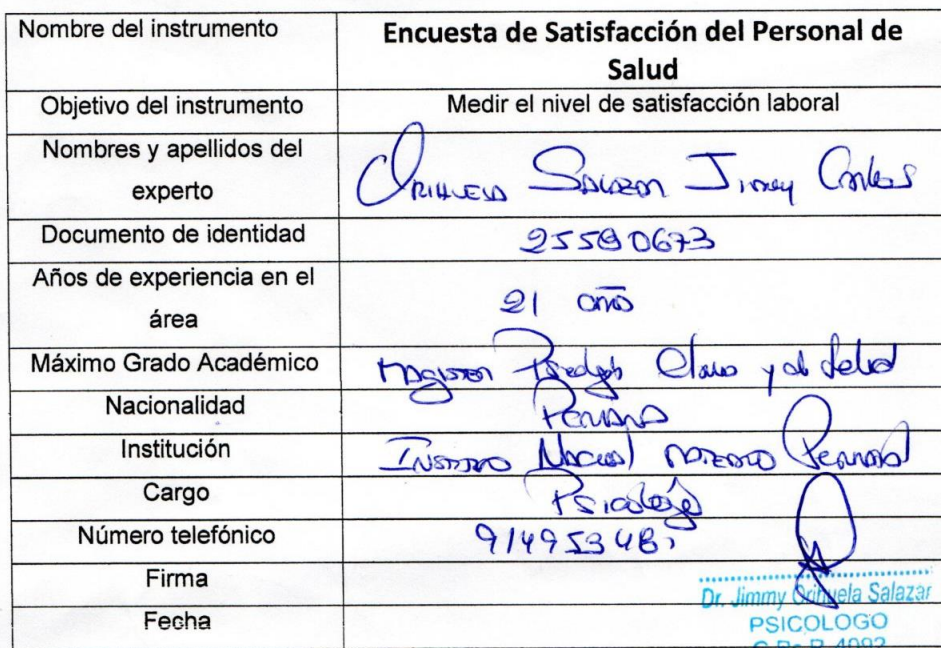 Nombre del instrumento
Encuesta de Satisfacción del Personal de
Salud
Objetivo del instrumento
Medir el nivel de satisfacción laboral
Nombres y apellidos del
experto
Orihuela Salazar Jimmy Carlos
Documento de identidad
25590673
Años de experiencia en el
área
21 años
Máximo Grado Académico
Magister Psicología Clínica y de Salud
Nacionalidad
Peruana
Institución
Instituto Nacional Materno Perinatal
Cargo
Psicólogo
Número telefónico
Firma
Dr. Jimmy Orihuela Salazar
Fecha
PSICOLOGO
C.Ps.P. 4092